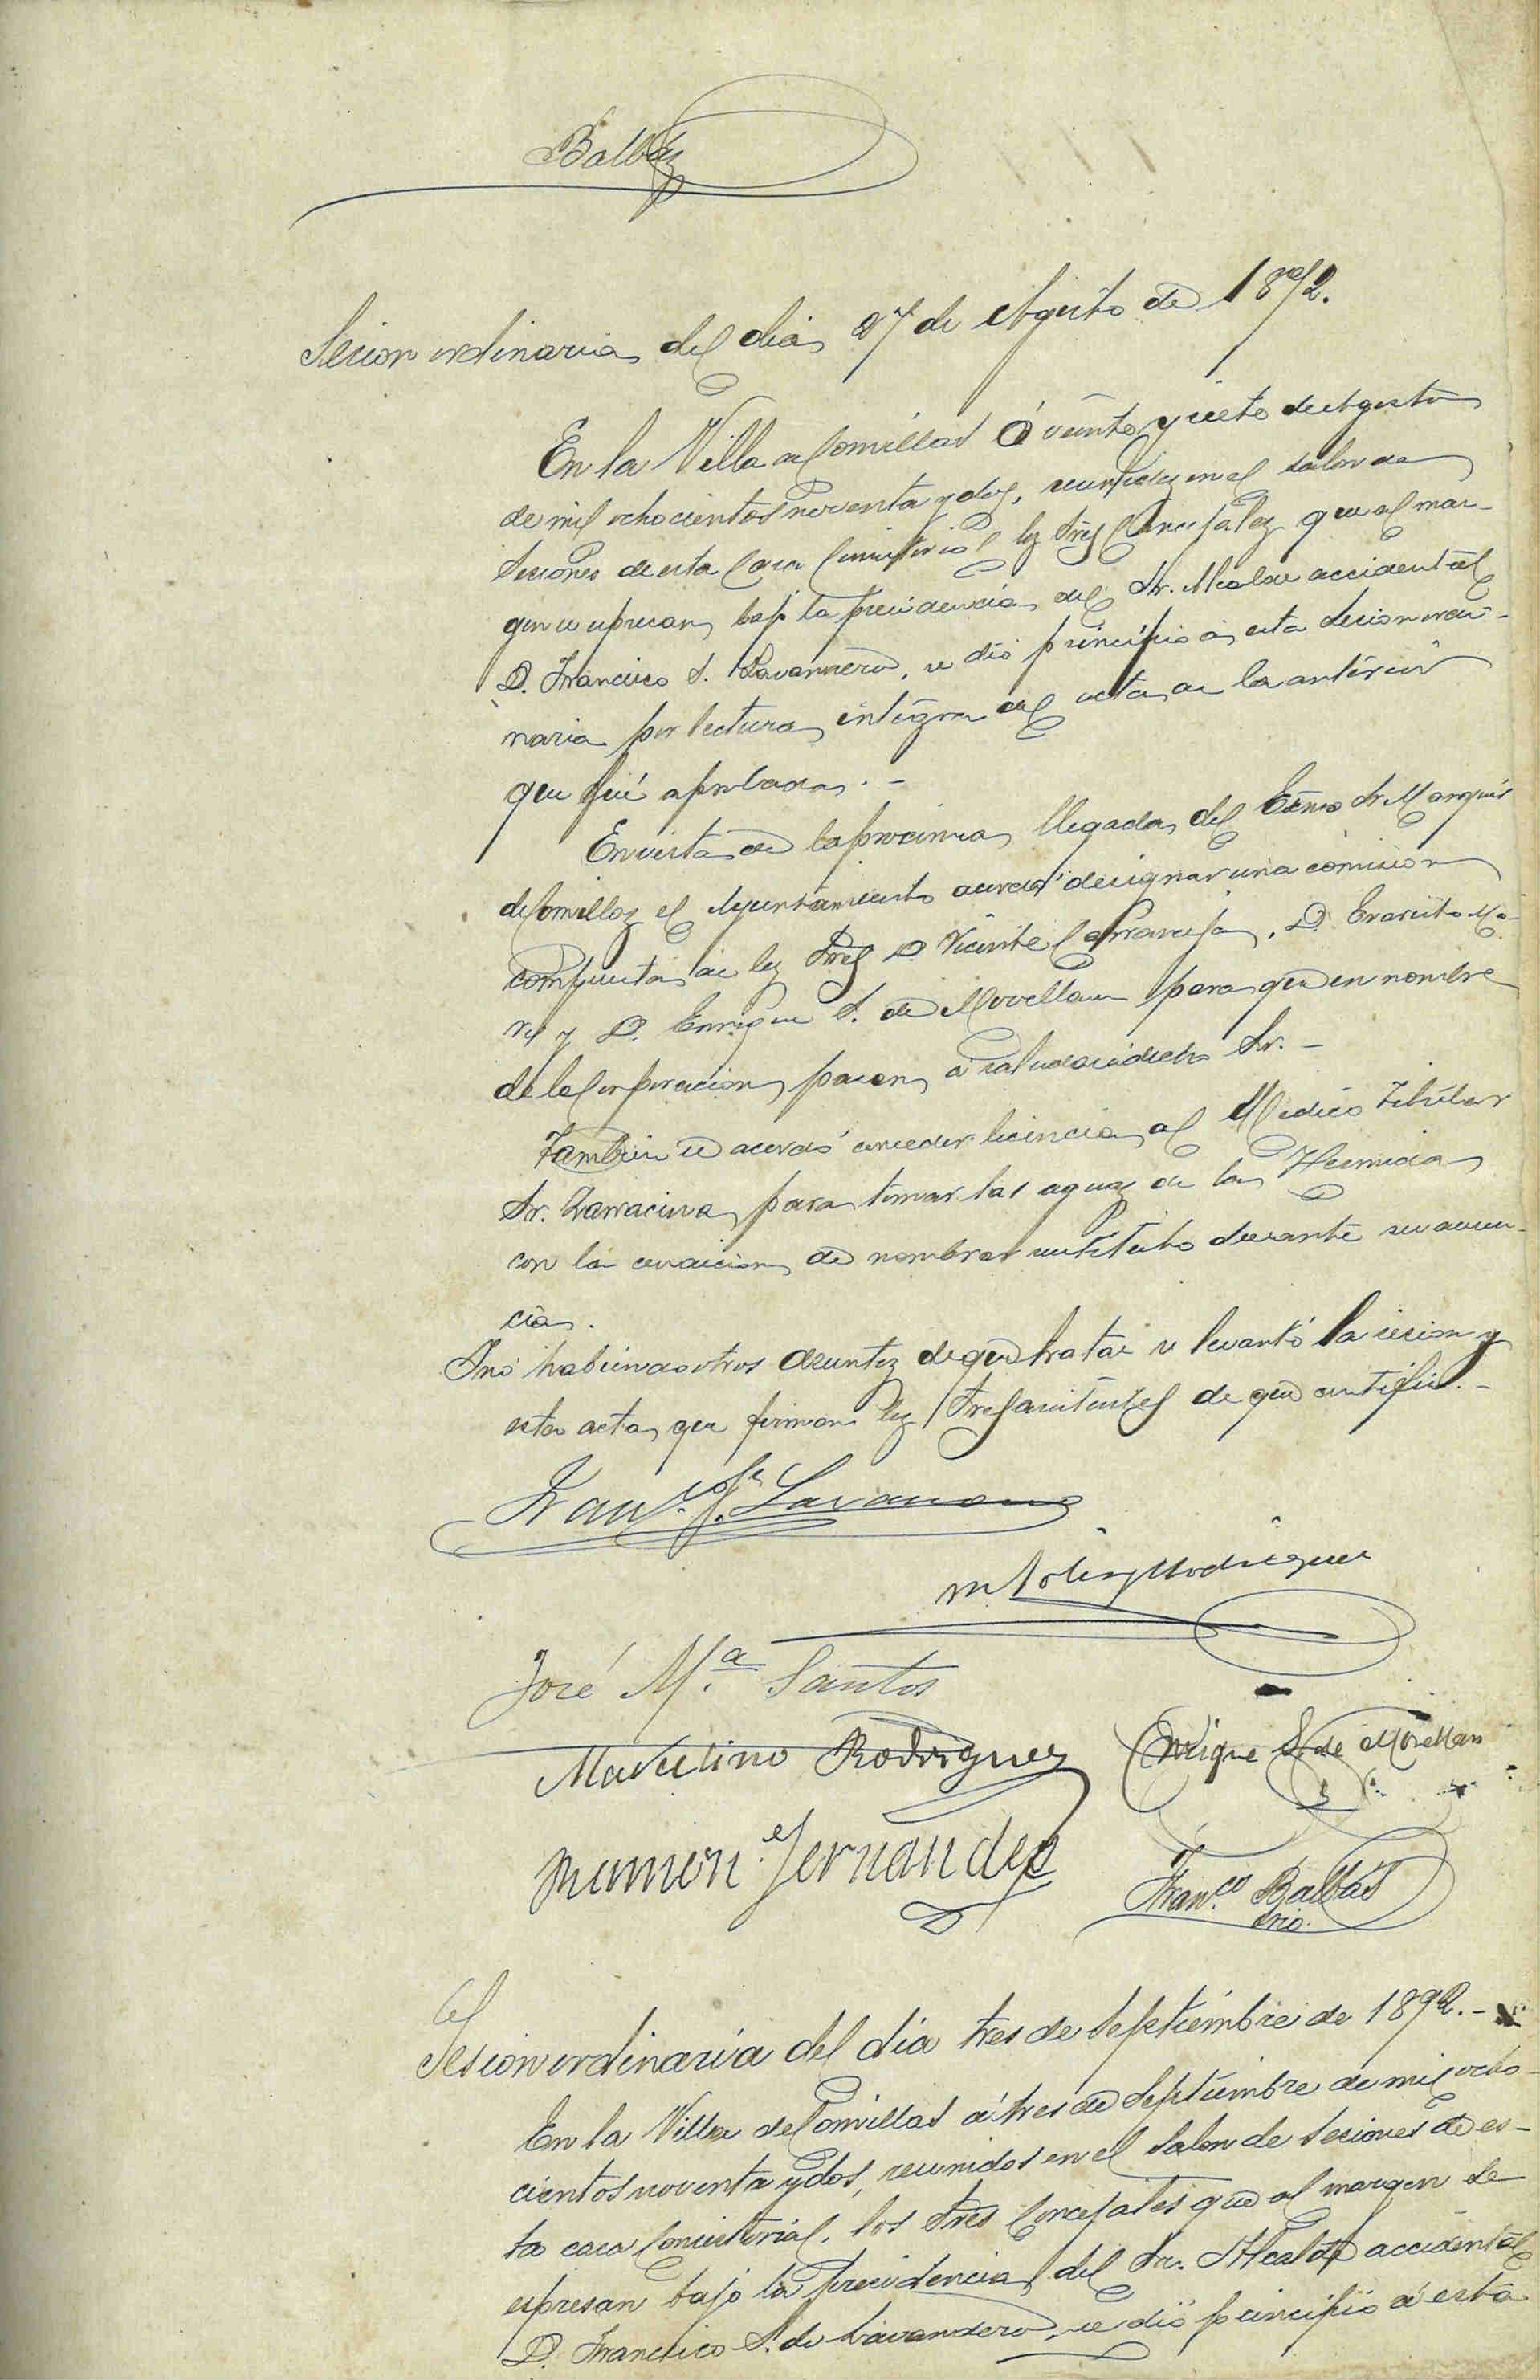 Balbás
Sesion ordinaria del dia 27 de Agosto de 1892.
En la Villa de Comillas á veinte y siete de Agosto
de mil ochocientos noventa y dos, reunidos en el salon de
sesiones de esta Casa Consistorial los Sres Concejales que al mar-
gen se espresan, bajo la presidencia del Sr. Alcalde accidental
D. Francisco S. Lavandero, se dió principio á esta sesion ordi-
naria por lectura integra del acta de la anterior
que fué aprobada. -
En vista de la proxima llegada del Excmo Sr Marqués
de Comillas el Ayuntamiento acordó designar una comision
compuesta de los Sres D Vicente Carranceja, D. Evaristo Mo-
 y D. Enrique S. de Movellan para que en nombre
de la Corporacion pasen á saludar á dicho Sr. -
Tambien se acordó conceder licencia al Medico titular
Sr. Zarracina para tomar las aguas de la Hermida
con la condicion de nombrar sustituto durante su ausen-
cia.
Y nó habiendo otros asuntos de que tratar se levantó la sesion y
esta acta que firman los Sres asistentes de que certifico. -
Fran.co S. Lavandero
M. Rodriguez
José M.a Santos
Marcelino Rodriguez
Enrique S. de Movellan
Ramon Fernandez
Fran.co Balbás
Srio.
Sesion ordinaria del dia tres de Septiembre de 1892. -
En la Villa de Comillas á tres de Septiembre de mil ocho-
cientos noventa y dos, reunidos en el salon de sesiones de es-
ta casa Consistorial, los Sres Concejales que al margen se
espresan bajo la presidencia del Sr. Alcalde accidental
D. Francisco S. de Lavandero, se dió principio á esta